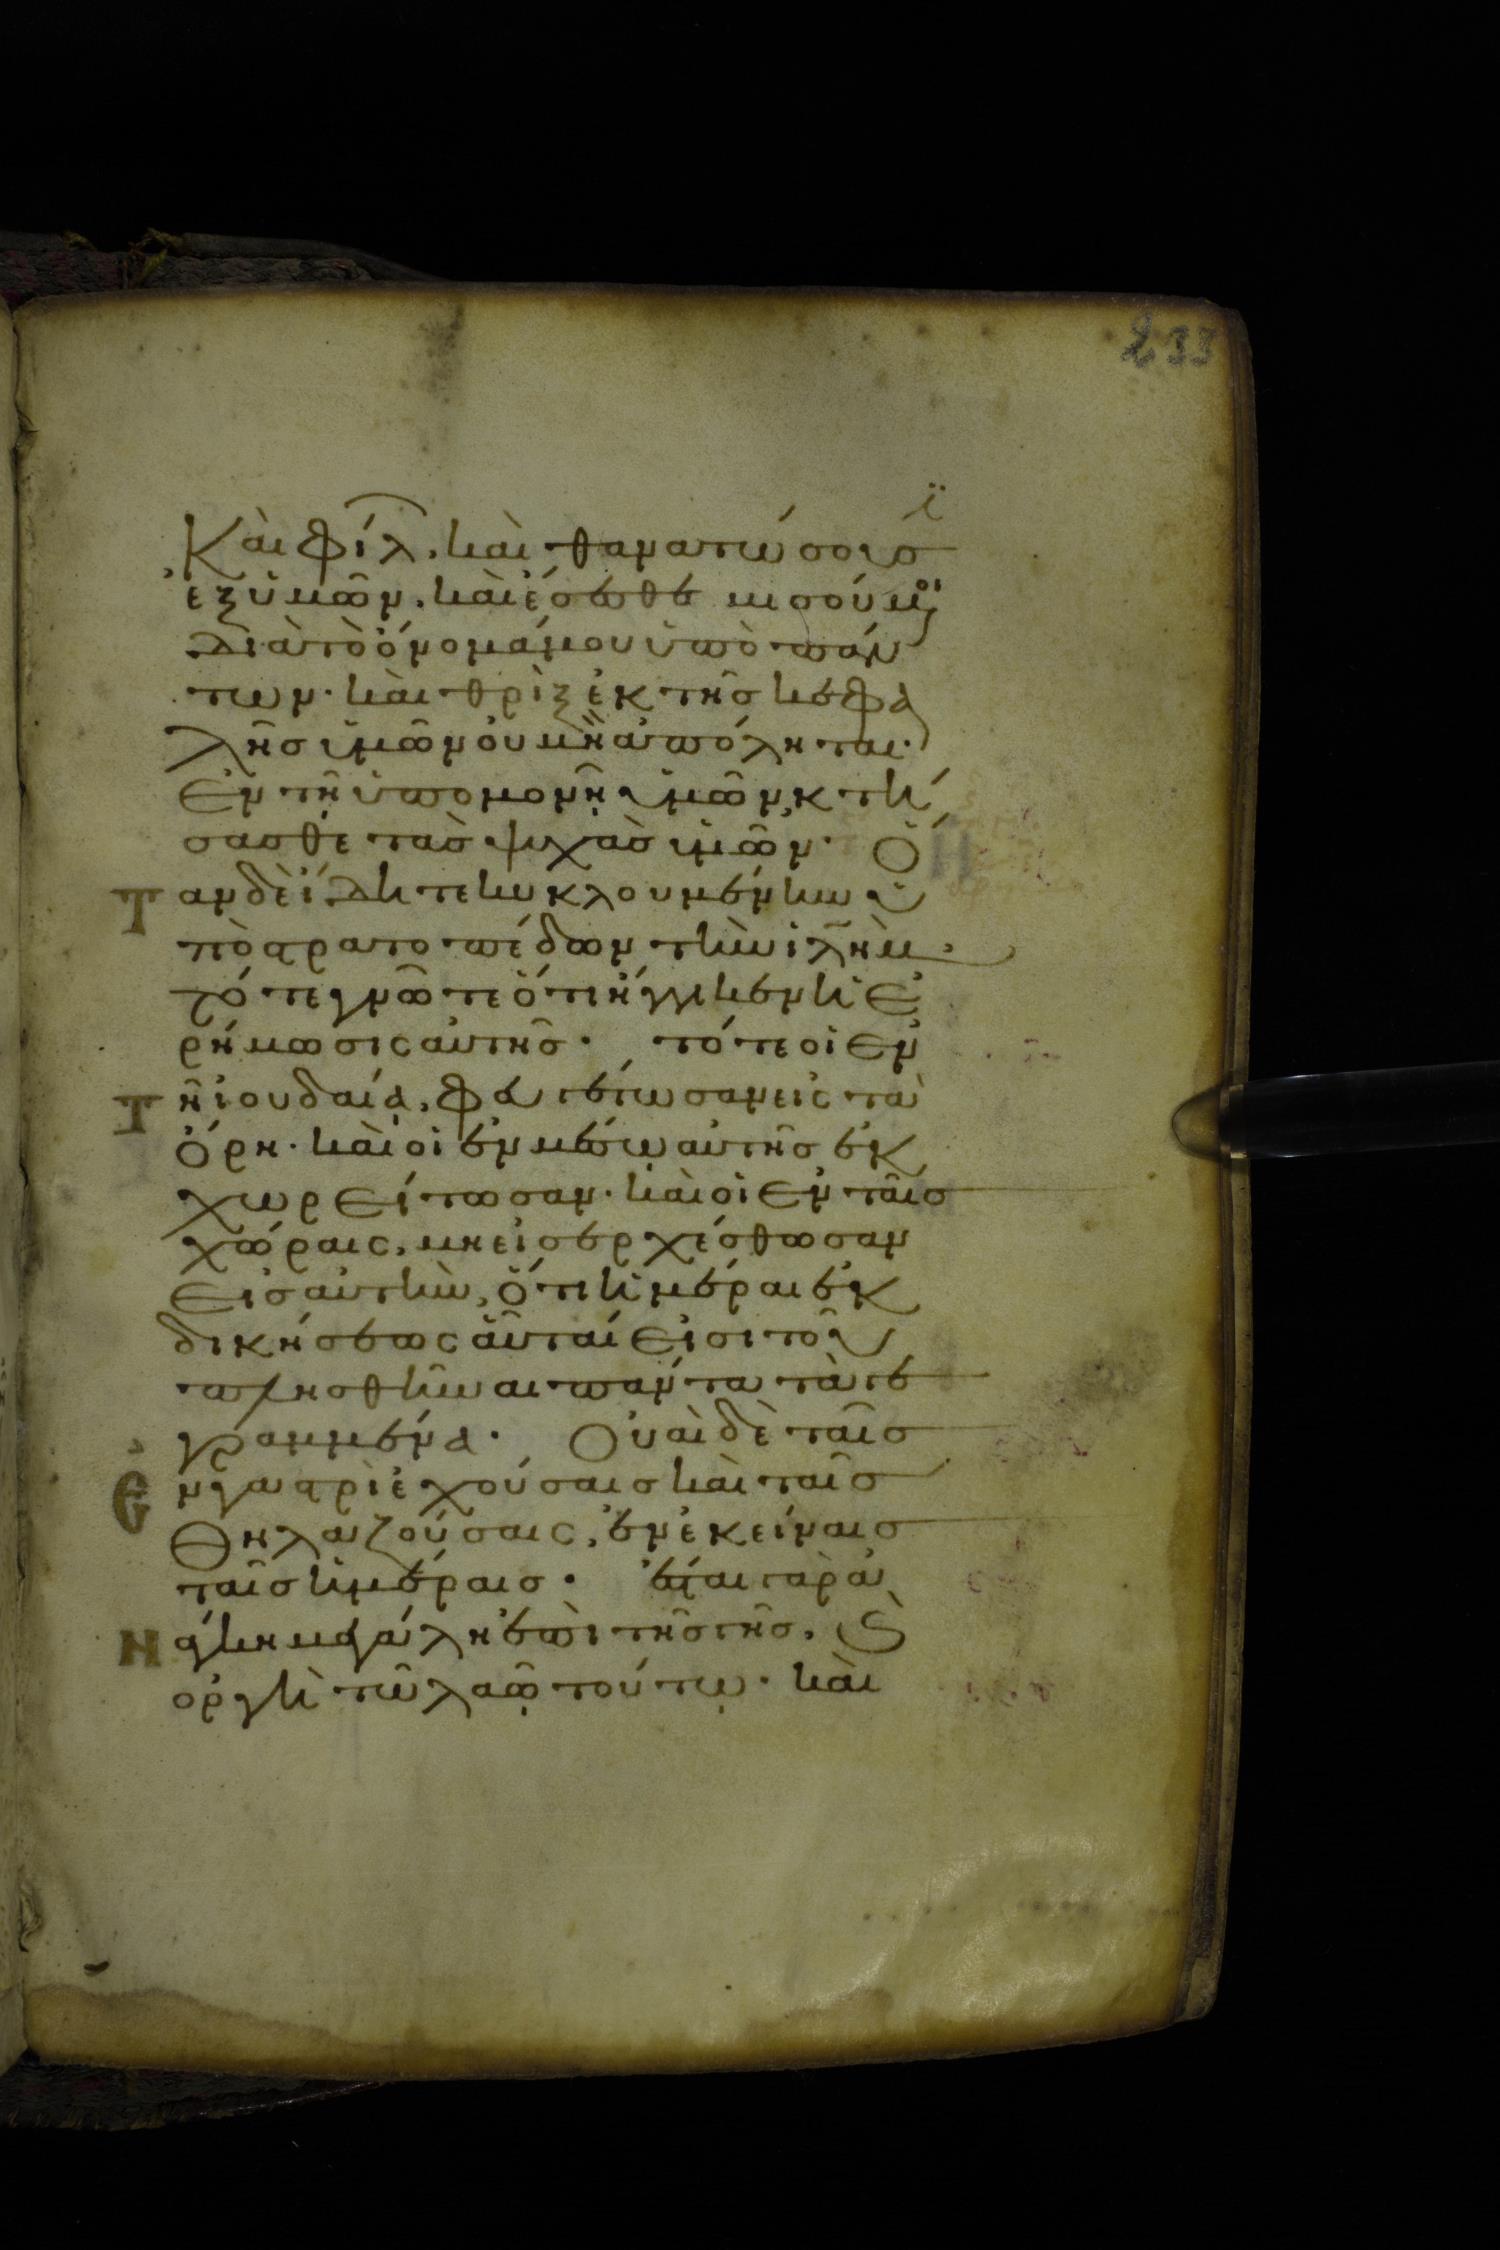 233
Καὶ φίλ. καὶ θανατώσουσϊ
ἐξ ὑμῶν. καὶ ἔσεσθε μισούμενοι
διὰ τὸ ὄνομά μου ὑπὸ πάν
των. καὶ θρὶξ ἐκ τῆς κεφα
λῆς ὑμῶν οὐ μὴ ἀπόληται.
Ἐν τῇ ὑπομονῇ ὑμῶν κτή
σασθε τὰς ψυχὰς ὑμῶν. Ὅ
ταν δὲ ἴδητε κυκλουμένην ὑ
πὸ στρατοπέδων τὴν ἰλῆμ.
τότε γνῶτε ὅτι ἤγγικεν ἡ ἐ
ρήμωσις αὐτῆς. τότε οἱ ἐν
Τ ῇ ἰουδαίᾳ, φευγέτωσαν εἰς τὰ
ὄρη. καὶ οἱ ἐν μέσῳ αὐτῆς ἐκ
χωρείτωσαν. καὶ οἱ ἐν ταῖς
χώραις, μὴ εἰσερχέσθωσαν
εἰς αὐτήν, ὅτι ἡμέραι ἐκ
δικήσεως αὗταί εἰσι τοῦ
πλησθῆναι πάντα τὰ γε
γραμμένα. Οὐαὶ δὲ ταῖς
Ἐ ν γαστρὶ ἐχούσαις καὶ ταῖς
θηλαζούσαις, ἐν ἐκείναις
ταῖς ἡμέραις. ἔσται γὰρ ἀ
νάγκη μεγάλη ἐπὶ τῆς γῆς. ϗ
ὀργὴ τῷ λαῷ τούτῳ. καὶ